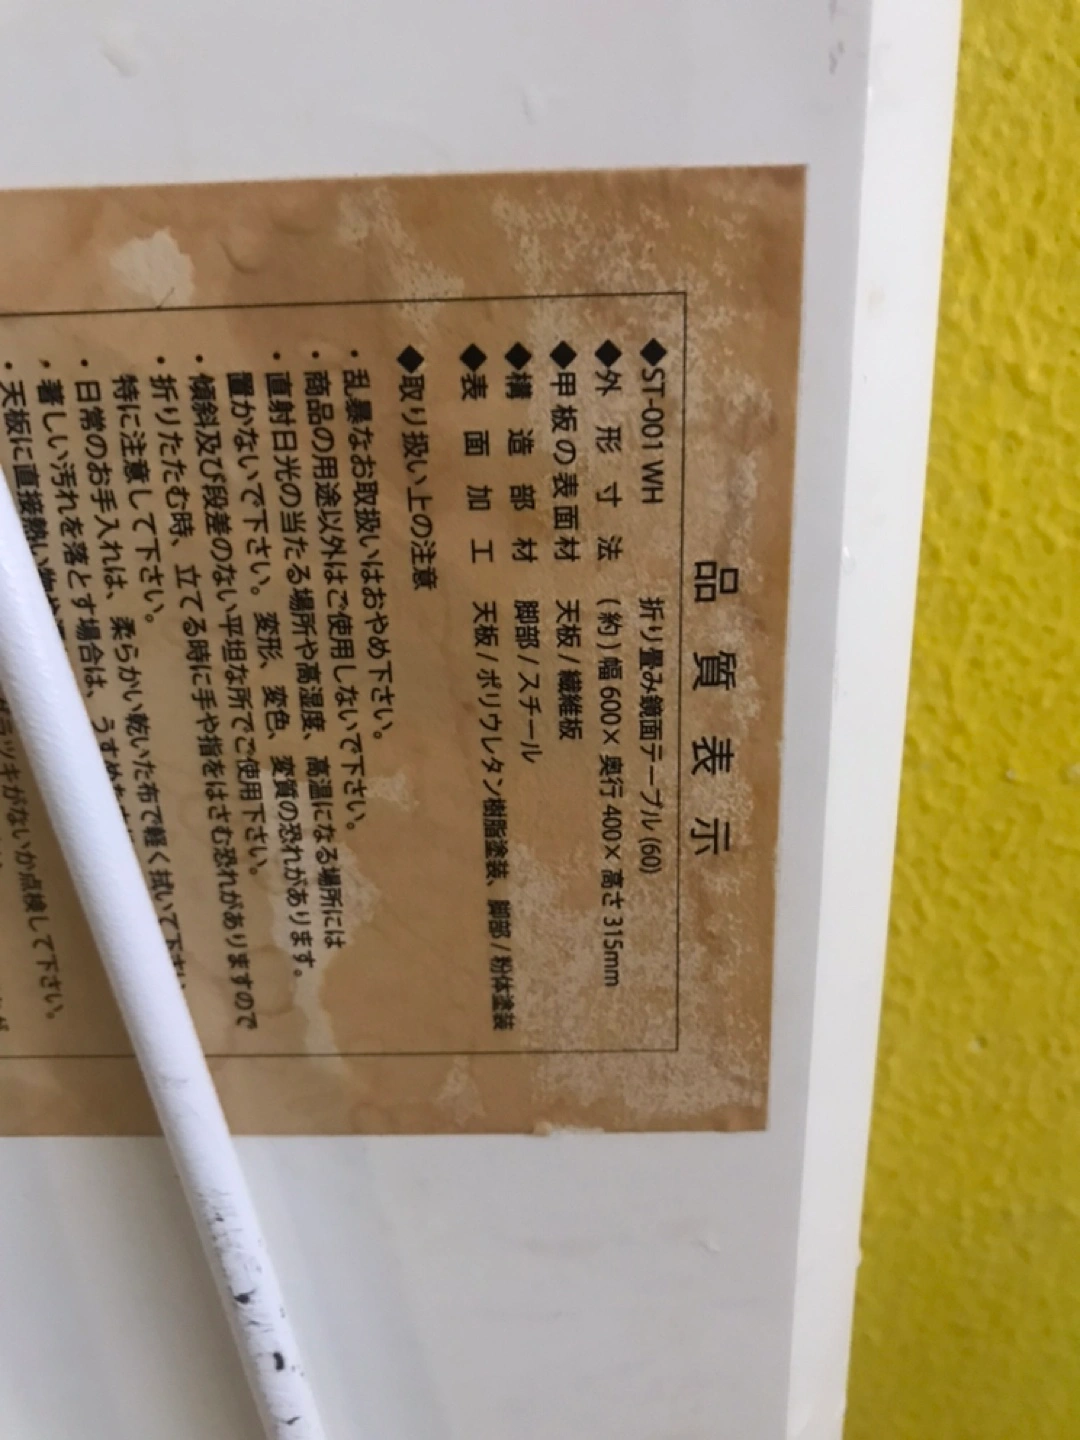 品質表示
◆ST-001 WH 折り畳み鏡面テーブル(60)
◆外形寸法 (約)幅600×奥行400×高さ315mm
◆甲板の表面材 天板/繊維板
◆構造部材 脚部/スチール
◆表面加工 天板/ポリウレタン樹脂塗装、脚部/粉体塗装
◆取り扱い上の注意
・乱暴なお取扱いはおやめ下さい。
・商品の用途以外はご使用しないで下さい。
・直射日光の当たる場所や高湿度、高温になる場所には
置かないで下さい。変形、変色、変質の恐れがあります。
・傾斜及び段差のない平坦な所でご使用下さい。
・折りたたむ時、立てる時に手や指をはさむ恐れがありますので
特に注意して下さい。
・日常のお手入れは、柔らかい乾いた布で軽く拭いて下さい
・著しい汚れを落とす場合は、うすめた
・天板に直接熱い物
ガラツキがないか点検して下さい。